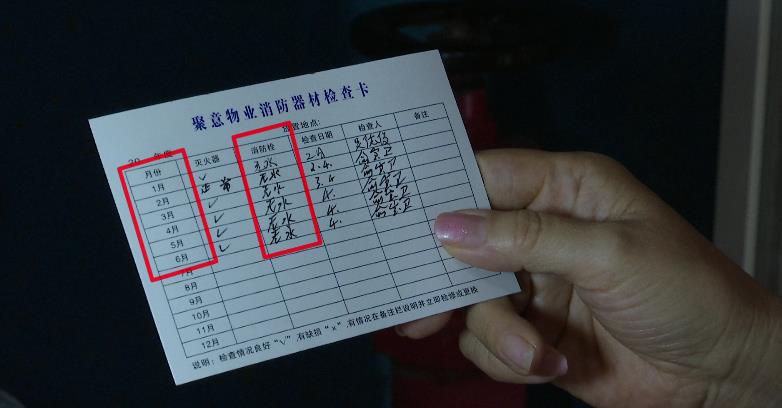 聚意物业消防器材检查卡
20 年度 放置地点:
月份 灭火器 消防栓 检查日期 检查人 备注
1月 √ 无水
2月 正常 无水 2.4.
3月 √ 无水 3.4
4月 √ 无水 4.
5月 √ 无水 4.
6月 √ 无水 4.
7月
8月
9月
10月
11月
12月
说明: 检查情况良好"√",有缺损"×",有情况在备注栏说明并立即检修或更换